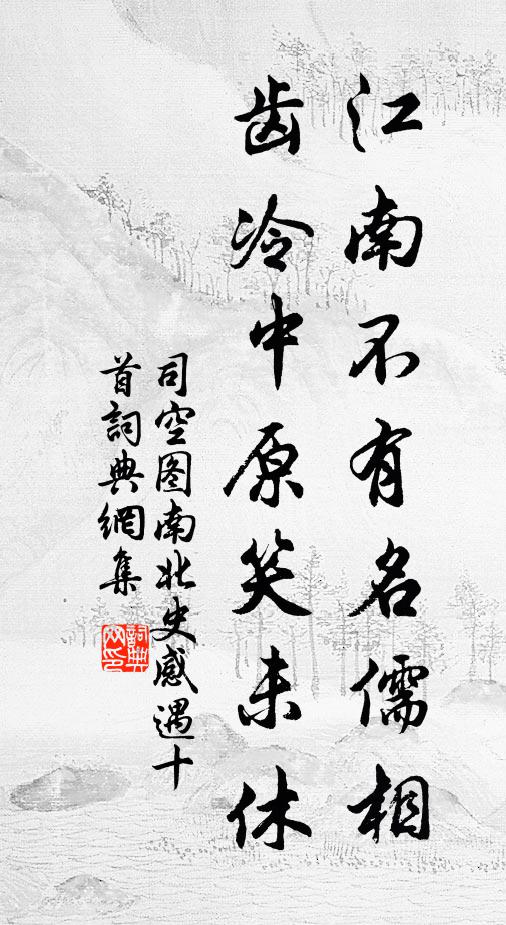 江南不有名儒相
齿冷中原笑未休
司空图南北史感遇十
首詞典網集
詞典
网印